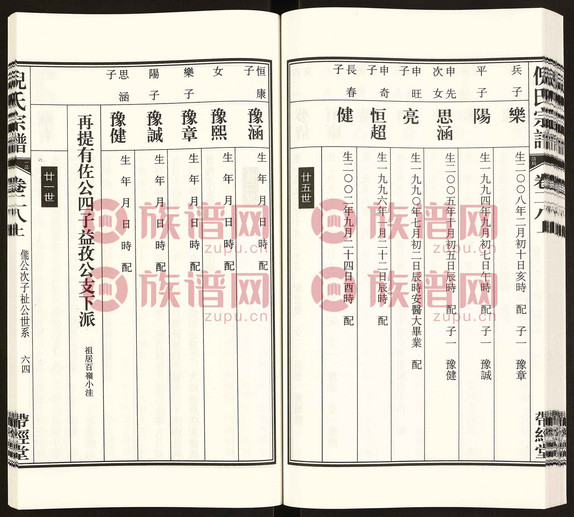 兵子 樂 生二〇〇八年二月初十日亥時 配 子一 豫章
平子 陽 生一九九四年九月初七日午時 配 子一 豫誠
申先次女 思涵 生二〇〇五年十月初五日辰時 配 子一 豫健
申旺子 亮 生一九九〇年七月初二日辰時安醫大畢業 配
申奇子 恒超 生一九九六年一月二十二日辰時 配
長春子 健 生二〇〇二年九月二十四日酉時 配
廿五世
恒康子 豫涵 生 年 月 日 時 配
女 豫熙 生 年 月 日 時 配
樂子 豫章 生 年 月 日 時 配
陽子 豫誠 生 年 月 日 時 配
思涵子 豫健 生 年 月 日 時 配
再提有佐公四子益孜公支下派 祖居百嶺小洼
廿一世
倪氏宗譜
公次子祉公世系 六四
帶經堂
族谱网
zupu.cn
族谱网
zupu.cn
族谱网
zupu.cn
族谱网
zupu.cn